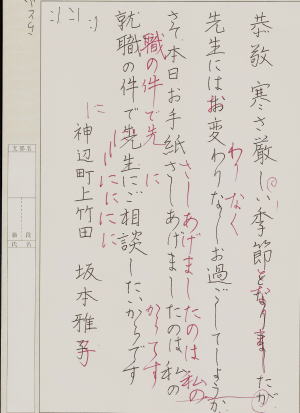 恭敬 寒さ厳しい季節となりましたが
い
わりなく
先生にはお変わりなしお過ごしでしょうか
さて本日お手紙さしあげましたのは私の
さしあげましたのは私の
職の件で先に
からです
就職の件で先生にご相談したいからです
に
にににに
神辺町上竹田 坂本雅
氏名